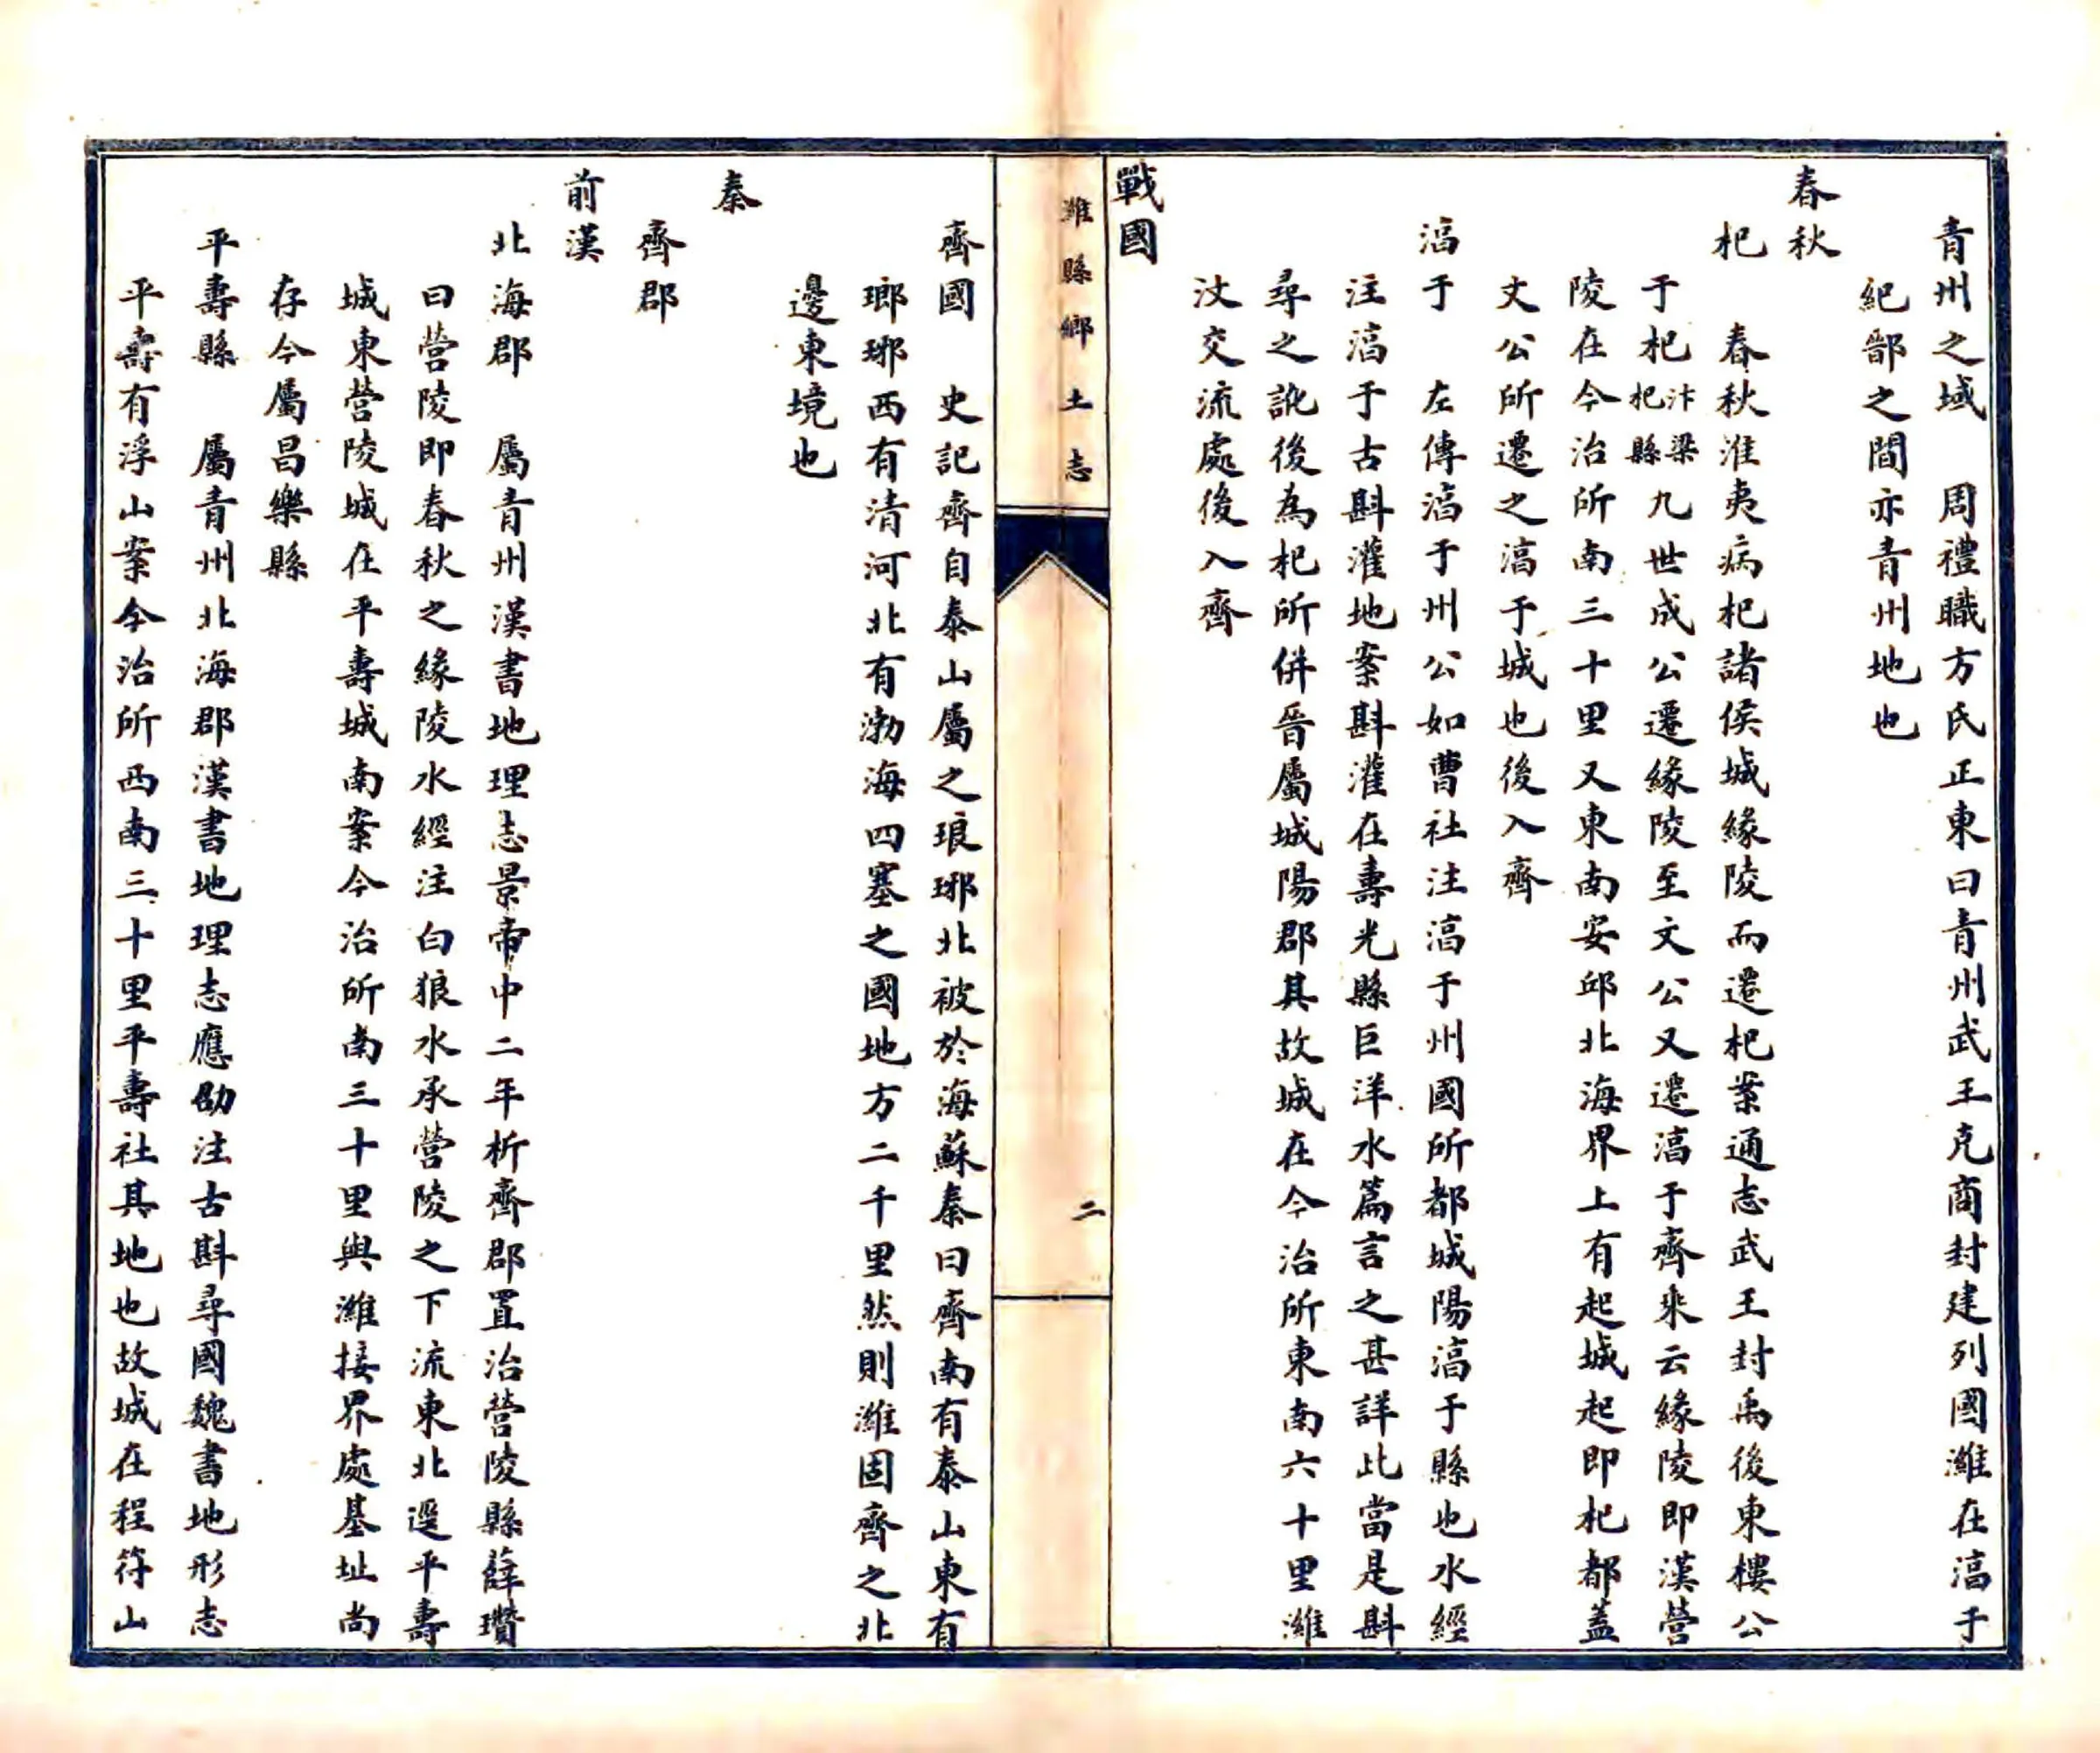 青州之域　周禮職方氏正東曰青州武王克商封建列國濰在淳于
紀鄑之間亦青州地也
春秋
杞　春秋淮夷病杞諸侯城緣陵而遷杞案通志武王封禹後東樓公
于杞汴梁杞縣九世成公遷緣陵至文公又遷淳于齊乘云緣陵即漢營
陵在今治所南三十里又東南安邱北海界上有起城起即杞都蓋
文公所遷之淳于城也後入齊
淳于　左傳淳于州公如曹社注淳于州國所都城陽淳于縣也水經
注淳于古斟灌地案斟灌在壽光縣巨洋水篇言之甚詳此當是斟
尋之訛後為杞所併晉屬城陽郡其故城在今治所東南六十里濰
汶交流處後入齊
戰國
濰縣鄉土志
二
齊國　史記齊自泰山屬之琅琊北被於海蘇秦曰齊南有泰山東有
瑯琊西有清河北有渤海四塞之國地方二千里然則濰固齊之北
邊東境也
秦
齊郡
前漢
北海郡　屬青州漢書地理志景帝中二年析齊郡置治營陵縣薛瓚
曰營陵即春秋之緣陵水經注白狼水承營陵之下流東北逕平壽
城東營陵城在平壽城南案今治所南三十里與濰接界處基址尚
存今屬昌樂縣
平壽縣　屬青州北海郡漢書地理志應劭注古斟尋國魏書地形志
平壽有浮山案今治所西南三十里平壽社其地也故城在程符山